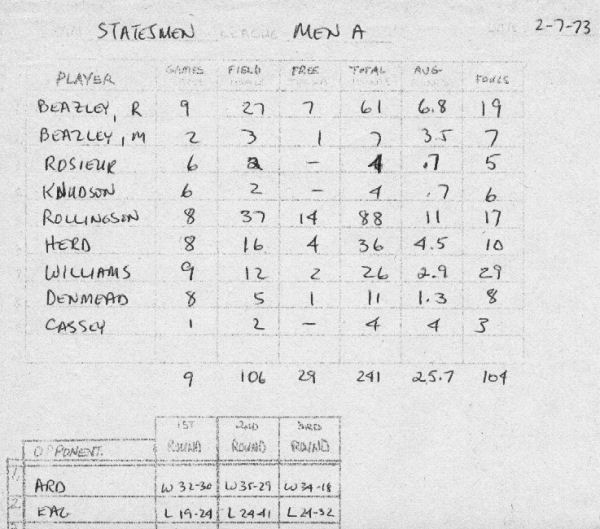 STATESMEN LEAGUE MEN A 2-7-73
PLAYER GAMES FIELD FREE TOTAL AVG FOULS
BEAZLEY, R 9 27 7 61 6.8 19
BEAZLEY, M 2 3 1 7 3.5 7
ROSIEUR 6 2 – 4 .7 5
KNUDSON 6 2 – 4 .7 6
ROLLINGSON 8 37 14 88 11 17
HERD 8 16 4 36 4.5 10
WILLIAMS 9 12 2 26 2.9 29
DENMEAD 8 5 1 11 1.3 8
CASSEY 1 2 – 4 4 3
9 106 29 241 25.7 104
1ST 2ND 3RD
OPPONENT. ROUND ROUND ROUND
1 ARD W 32-30 W 35-29 W 34-18
2 EAG L 19-24 L 24-41 L 24-32